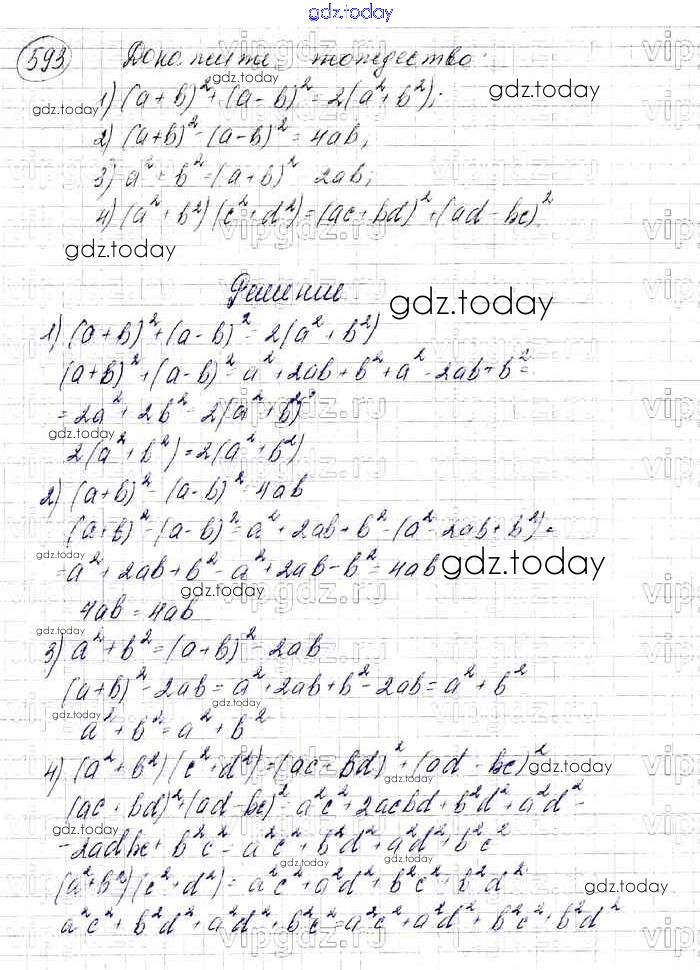 gdz.today
593 Докажите тождество:
1) (a + b)² + (a - b)² = 2(a² + b²);
gdz.today
gdz.today
2) (a+b)² - (a-b)² = 4ab;
3) a² + b² = (a+b)² 2ab;
gdz.today
4) (a² + b²)(c² + d²) = (ac + bd)² + (ad - bc)².
gdz.today
Решение
gdz.today
1) (a + b)² + (a - b)² = 2(a² + b²)
(a+b)² + (a - b)² = a² + 2ab + b² + a² - 2ab + b² =
= 2a² + 2b² = 2(a² + b²)
gdz.today
2(a² + b²) = 2(a² + b²)
2) (a+b)² - (a-b)² = 4ab
(a+b)² - (a-b)² = a² + 2ab + b² - (a² - 2ab + b²) =
gdz.today
= a² + 2ab + b² - a² + 2ab - b² = 4ab
gdz.today
4ab = 4ab
gdz.today
3) a² + b² = (a+b)² - 2ab
(a+b)² - 2ab = a² + 2ab + b² - 2ab = a² + b²
gdz.today
a² + b² = a² + b²
4) (a² + b²)(c² + d²) = (ac + bd)² + (ad - bc)²
gdz.today
(ac + bd)² + (ad - bc)² = a²c² + 2acbd + b²d² + a²d² -
gdz.today
- 2adbc + b²c² = a²c² + b²d² + a²d² + b²c²
gdz.today
gdz.today
(a² + b²)(c² + d²) = a²c² + a²d² + b²c² + b²d²
gdz.today
a²c² + b²d² + a²d² + b²c² = a²c² + a²d² + b²c² + b²d²